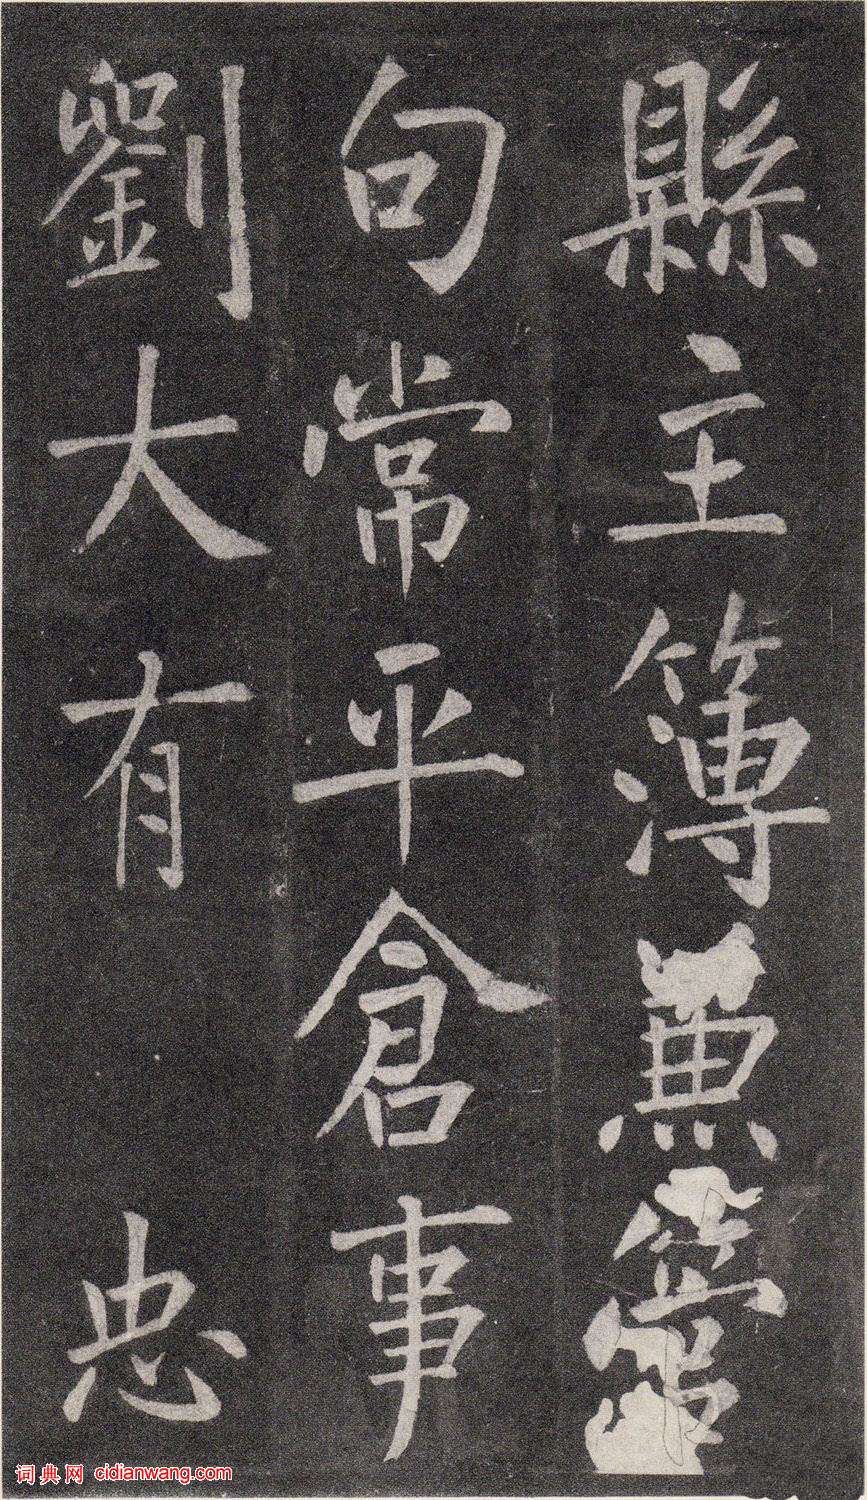 縣主簿兼管
句常平倉事
劉大有 忠
词典网 cidianwang.com